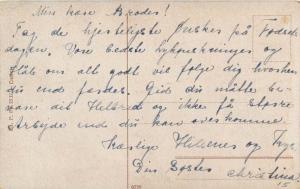 Min kære Brodes!
Tag de hjerteligste Ønsker på Fødsels
dagen. Vore bedste lykønskninges og
Håb om alt godt vil følge dig hvorhen
du end færdes. Gid du måtte be-
vare dit Helbred og ikke få større
Arbejde end du kan overkomme.
Kærlige Hilsenes og Kys
Din Søstes Christina.
15